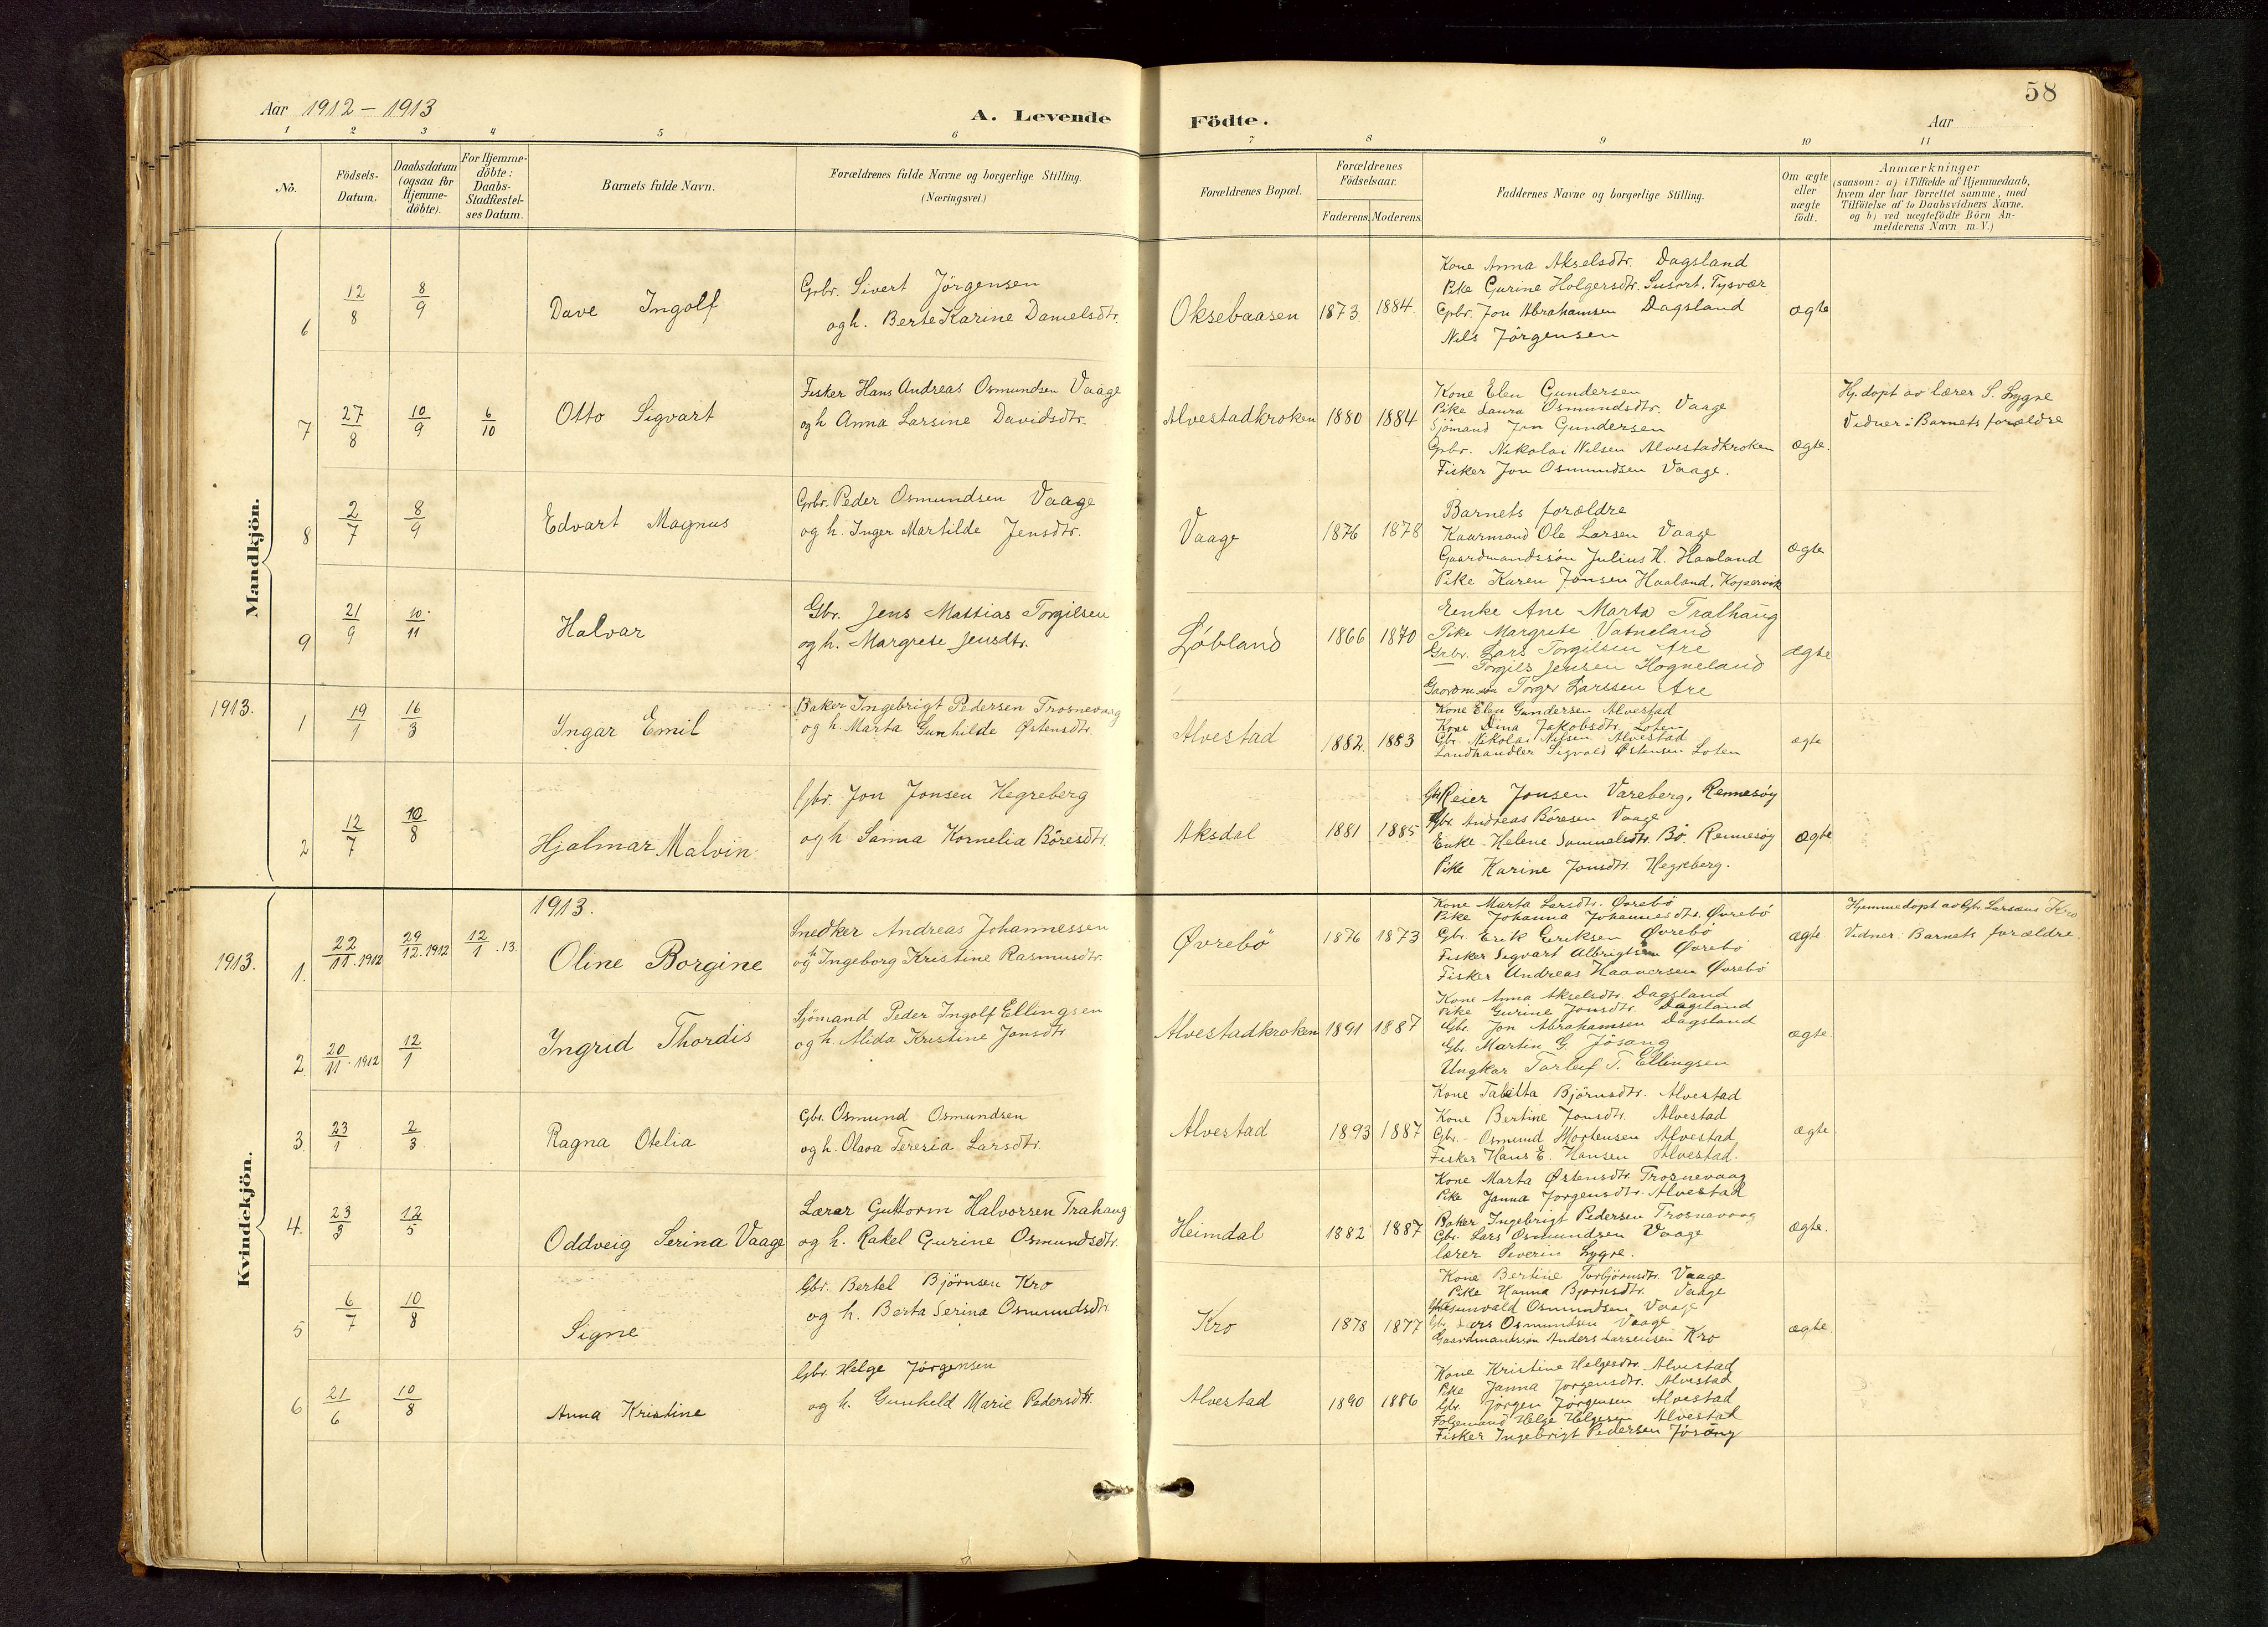 Aar 1912 - 1913
A. Levende
Födte.
Aar
58
1 2 3 4 5 6 7 8 9 10 11
No.
Födsels-
Datum.
Daabsdatum
(ogsaa for
Hjemme-
döbte).
For Hjemme-
döbte:
Daabs-
Stadfæstel-
ses Datum.
Barnets fulde Navn.
Forældrenes fulde Navne og borgerlige Stilling.
(Næringsvei.)
Forældrenes Bopæl.
Forældrenes
Födselsaar.
Faderens. Moderens.
Faddernes Navne og borgerlige Stilling.
Om ægte
eller
uægte
födt.
Anmærkninger
(saasom: a) i Tilfælde af Hjemmedaab,
hvem der har forrettet samme, med
Tilföielse af to Daabsvidners Navne,
og b) ved uægtefödte Börn An-
melderens Navn m. V.)
Mandkjön.
6
12/8
8/9
Dave Ingolf
Grbr. Sivert Jörgensen
og h. Berte Karine Danielsdtr.
Oksebaasen
1873
1884
Kone Anna Akselsdtr. Dagsland
Pike Gurine Holgersdtr. Susort, Tysvær
Grbr. Jon Abrahamsen Dagsland
Nils Jörgensen
ægte
7
27/8
10/9
6/10
Otto Sigvart
Fisker Hans Andreas Osmundsen Vaage
og h Anna Larsine Davidsdtr.
Alvestadkroken
1880
1884
Kone Elen Gundersen
Pike Laura Osmundsdtr. Vaage
Sjömand Jon Gundersen
Grbr. Nikolai Nilsen Alvestadkroken
Fisker Jon Osmundsen Vaage.
ægte.
Hj.döpt av lærer S. Lygre
Vidner: Barnets forældre
8
2/7
8/9
Edvart Magnus
Grbr. Peder Osmundsen Vaage
og h. Inger Martilde Jensdtr.
Vaage
1876
1878
Barnets forældre
Kaarmand Ole Larsen Vaage
Gaardmandssön Julius H. Haaland
Pike Karen Jönsen Haaland, Kopervik
ægte
9
21/9
10/11
Halvar
Gbr. Jens Mattias Torgilsen
og h. Margrete Jensdtr.
Løbland
1866
1870
Enke Ane Marta Tralhaug
Pike Margrete Vatneland
Grbr. Lars Torgilsen Are
— Torgils Jensen Hogneland
Gaardm.søn Torger Larssen Are
ægte
1913.
1
19/1
16/3
Yngar Emil
Baker Ingebrigt Pedersen Trosnevaag
og h. Marta Gunhilde Østensdtr.
Alvestad
1882.
1883
Kone Elen Gundersen Alvestad
Kone Dina Jakobsdtr. Loten
Gbr. Nikolai Nilsen Alvestad
Landhandler Sigvald Østensen Loten
ægte
2
12/7
10/8
Hjalmar Malvin
Gbr. Jon Jonsen Hegreberg
og h. Sanna Kornelia Böresdtr.
Aksdal
1881
1885
Gbr Reier Jonsen Vareberg, Rennesöy
Gbr. Andreas Böresen Vaage
Enke Helene Samuelsdtr. Bö. Rennesöy
Pike Karine Jonsdtr. Hegreberg.
ægte
Kvindekjön.
1913.
1913.
1.
22/11.1912
29/12.1912
12/1.13.
Oline Borgine
Snedker Andreas Johannessen
og h Ingeborg Kristine Rasmusdtr.
Øvrebö
1876
1873
Kone Marta Larsdtr. Øvrebö
Pike Johanna Johannesdtr. Øvrebö
Gbr. Erik Eriksen Øvrebö
Fisker Sigvart Albrigtsen Øvrebö
Fisker Andreas Haaversen Øvrebö
ægte
Hjemmedöpt av Gbr. Larsens Kro
Vidner: Barnets forældre
2
20/11.1912
12/1
Ingrid Thordis
Sjömand Peder Ingolf Ellingsen
og h. Alida Kristine Jonsdtr
Alvestadkroken
1891
1887
Kone Anna Akselsdtr. Dagsland
Pike Gurine Jonsdtr. Dagsland
Gbr. Jon Abrahamsen Dagsland
Gbr. Martin G. Jösang
Ungkar Torleif T. Ellingsen
ægte
3
23/1
2/3
Ragna Otelia
Gbr. Osmund Osmundsen
og h. Olava Teresia Larsdtr.
Alvestad
1893
1887
Kone Tabitta Björnsdtr. Alvestad
Kone Bertine Jonsdtr. Alvestad
Gbr. Osmund Mortensen Alvestad
Fisker Hans E. Hansen Alvestad.
ægte
4.
23/3
12/5
Oddveig Serina Vaage
Lærer Guttorm Halvorsen Trahaug
og h. Rakel Gurine Osmundsdtr.
Heimdal
1882
1887
Kone Marta Østensdtr. Trosnevaag
Pike Janna Jorgensdtr. Alvestad
Baker Ingebrigt Pedersen Trosnevaag
Gbr. Lars Osmundsen Vaage
lærer Severin Lygre.
ægte.
5
6/7
10/8
Signe
Gbr. Bertel Björnsen Kro
og h. Berta Serina Osmundsdtr.
Kro
1878
1877
Kone Bertine Torbjörnsdtr. Vaage
Pike Hanna Bjornsdtr. Vaage
Gunvald Osmundsen Vaage
Gbr. Lars Osmundsen Vaage
Gaardmandssøn Anders Larsensen Kro
ægte
6
21/6
10/8
Anna Kristine
Gbr. Helge Jörgensen
og h. Gunheld Marie Pedersdtr.
Alvestad
1890
1886
Kone Kristine Helgesdtr. Alvestad
Pike Janna Jorgensdtr. Alvestad
Gbr. Jörgen Jörgensen Alvestad
Folgemand Helge Helgesen Alvestad
Fisker Ingebrigt Pedersen Jösang